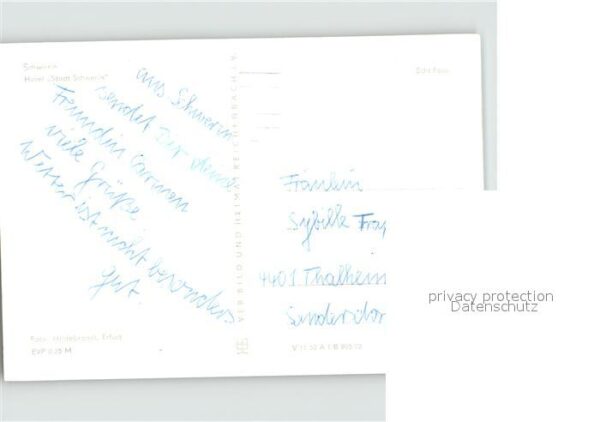 Schwerin
Hotel „Stadt Schwerin"
Echt Foto
aus Schwerin
sendet Dir deine
Freundin Carmen
viele Grüße.
Wetter ist nicht besonders
gut.
VEB BILD UND HEIMAT REICHENBACH I. V.
Fräulein
Sybille
4401 Thalheim
Foto: Hildebrandt, Erfurt
EVP 0.25 M
privacy protection
Datenschutz